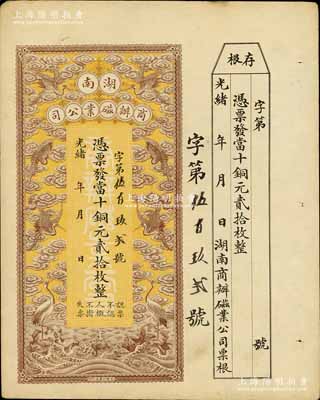 上海陽明拍賣
湖南
商辦磁業公司
字第伍百玖貳號
憑票發當十銅元貳拾枚整
光緒 年 月 日
認票不認人概不掛失票
字第伍百玖貳號
存根
字第 號
憑票發當十銅元貳拾枚整
光緒 年 月 日湖南商辦磁業公司票根